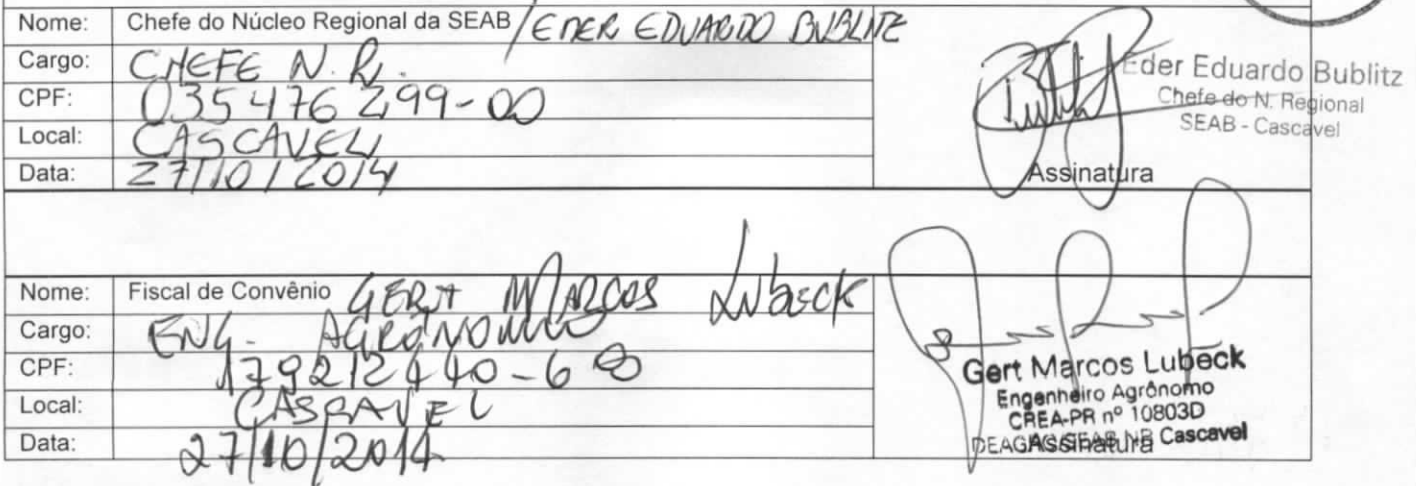 Nome: Chefe do Núcleo Regional da SEAB / EDER EDUARDO BUBLITZ
Cargo: CHEFE N. R.
CPF: 035476299-00
Local: CASCAVEL
Data: 27/10/2014
Eder Eduardo Bublitz
Chefe do N. Regional
SEAB - Cascavel
Assinatura
Nome: Fiscal de Convênio GERT MARCOS Lubeck
Cargo: ENG. AGRÔNOMO
CPF: 179212440-68
Local: CASCAVEL
Data: 27/10/2014
Gert Marcos Lubeck
Engenheiro Agrônomo
CREA-PR nº 10803D
Cascavel
Assinatura